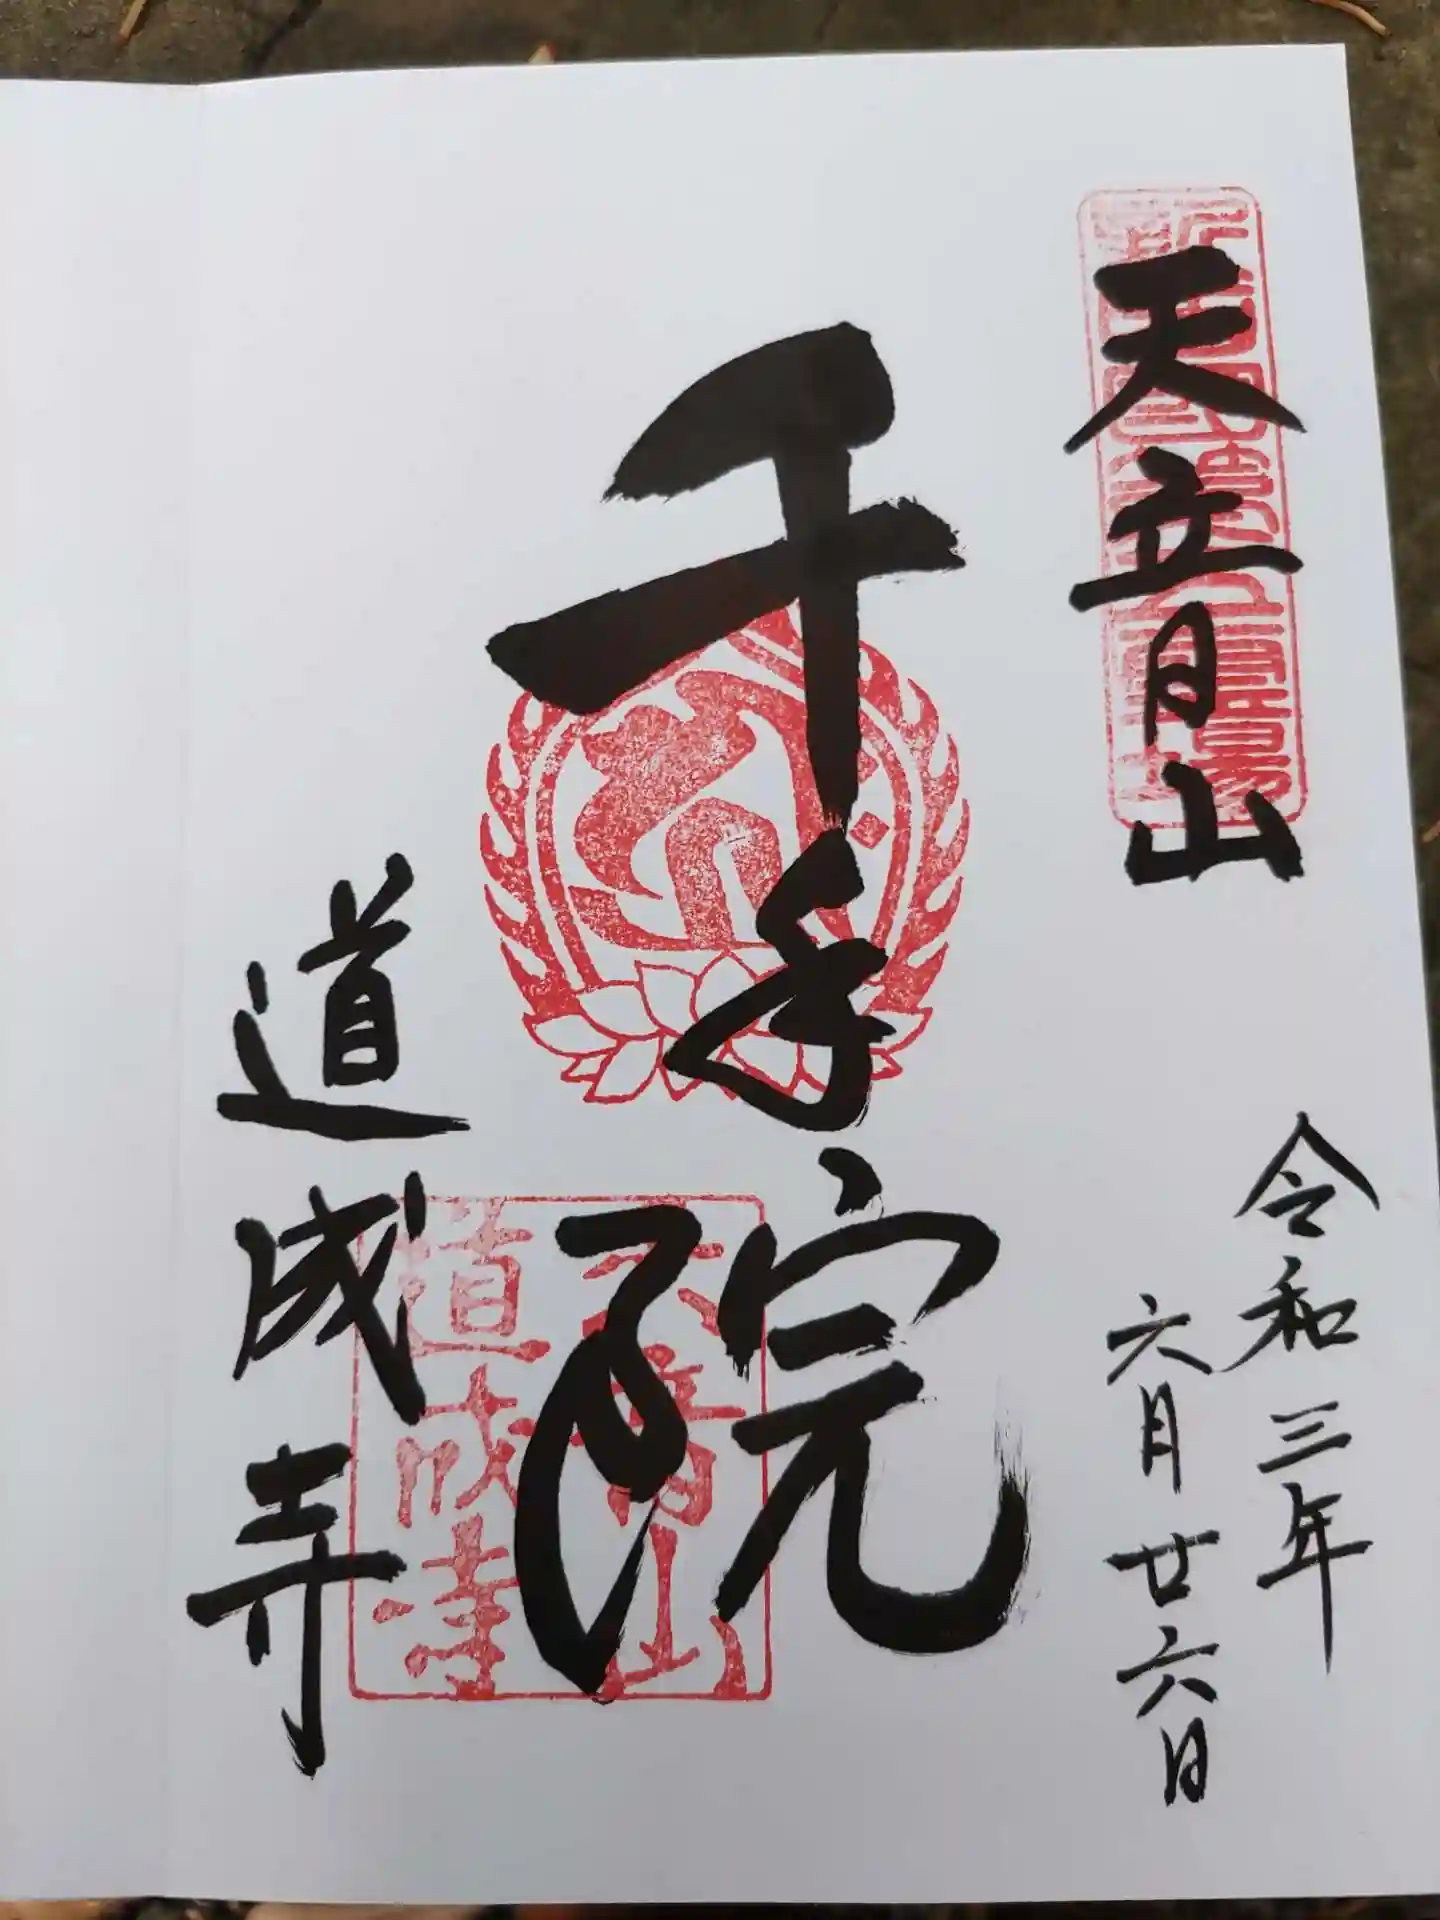 天音山
令和三年
六月廿六日
千手院
道成寺
天音山
道成寺